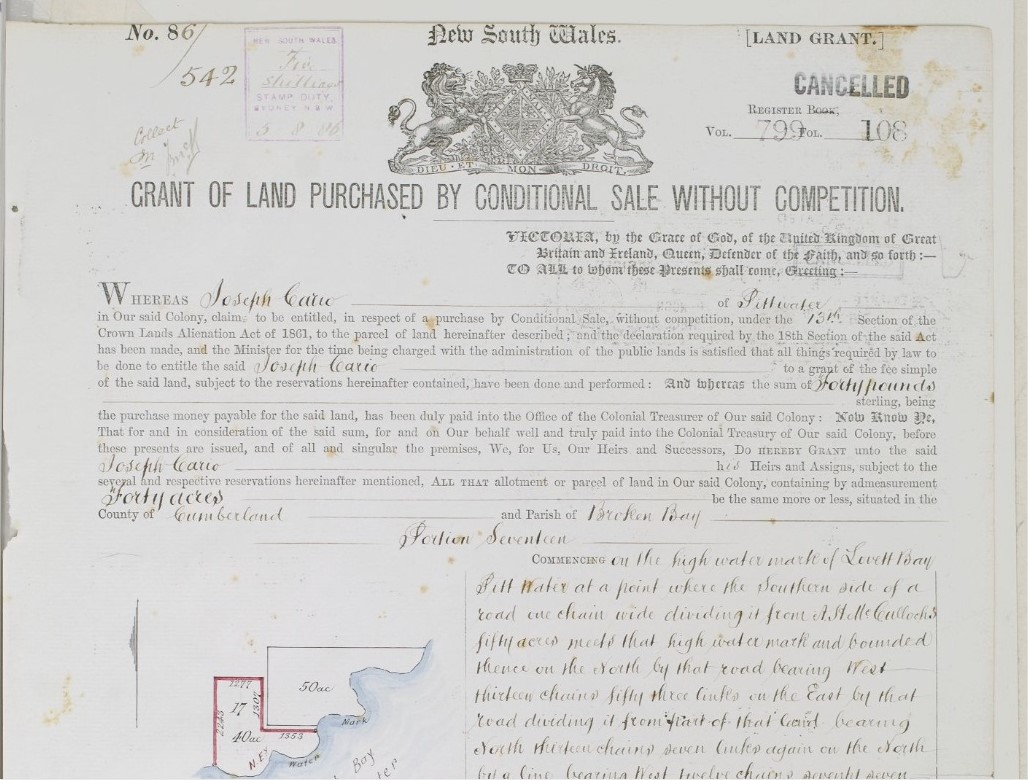 No. 86/
542
NEW SOUTH WALES.
Five
Shillings
STAMP DUTY.
SYDNEY N.S.W
5 8 86
New South Wales.
[LAND GRANT.]
CANCELLED
REGISTER BOOK,
VOL. 799 FOL. 108
Collect
DIEU · ET · MON · DROIT.
GRANT OF LAND PURCHASED BY CONDITIONAL SALE WITHOUT COMPETITION.
VICTORIA, by the Grace of God, of the United Kingdom of Great
Britain and Ireland, Queen, Defender of the Faith, and so forth :—
TO ALL to whom these Presents shall come, Greeting :—
WHEREAS Joseph Cario of Pittwater
in Our said Colony, claim to be entitled, in respect of a purchase by Conditional Sale, without competition, under the 13th Section of the
Crown Lands Alienation Act of 1861, to the parcel of land hereinafter described; and the declaration required by the 18th Section of the said Act
has been made, and the Minister for the time being charged with the administration of the public lands is satisfied that all things required by law to
be done to entitle the said Joseph Cario to a grant of the fee simple
of the said land, subject to the reservations hereinafter contained, have been done and performed : And whereas the sum of Forty pounds
sterling, being
the purchase money payable for the said land, has been duly paid into the Office of the Colonial Treasurer of Our said Colony : Now Know Ye,
That for and in consideration of the said sum, for and on Our behalf well and truly paid into the Colonial Treasury of Our said Colony, before
these presents are issued, and of all and singular the premises, We, for Us, Our Heirs and Successors, DO HEREBY GRANT unto the said
Joseph Cario his Heirs and Assigns, subject to the
several and respective reservations hereinafter mentioned, ALL THAT allotment or parcel of land in Our said Colony, containing by admeasurement
Forty acres be the same more or less, situated in the
County of Cumberland and Parish of Broken Bay
Portion Seventeen
COMMENCING on the high water mark of Lovett Bay
Pitt Water at a point where the Southern side of a
road one chain wide dividing it from A H McCulloch's
fifty acres meets that high water mark and bounded
thence on the North by that road bearing West
thirteen chains fifty three links on the East by that
road dividing it from part of that land bearing
North thirteen chains seven links again on the North
by a line bearing West twelve chains seventy seven
1277
50ac
17
1307
2243
40ac
1353
Mark
Water
Bay